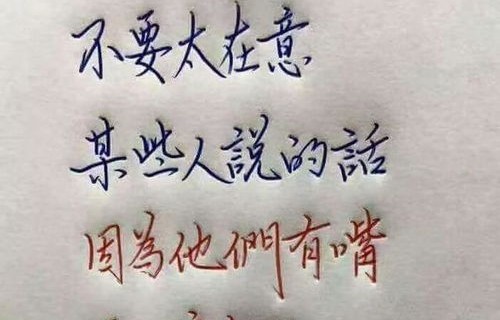 不要太在意
某些人說的話
因為他們有嘴